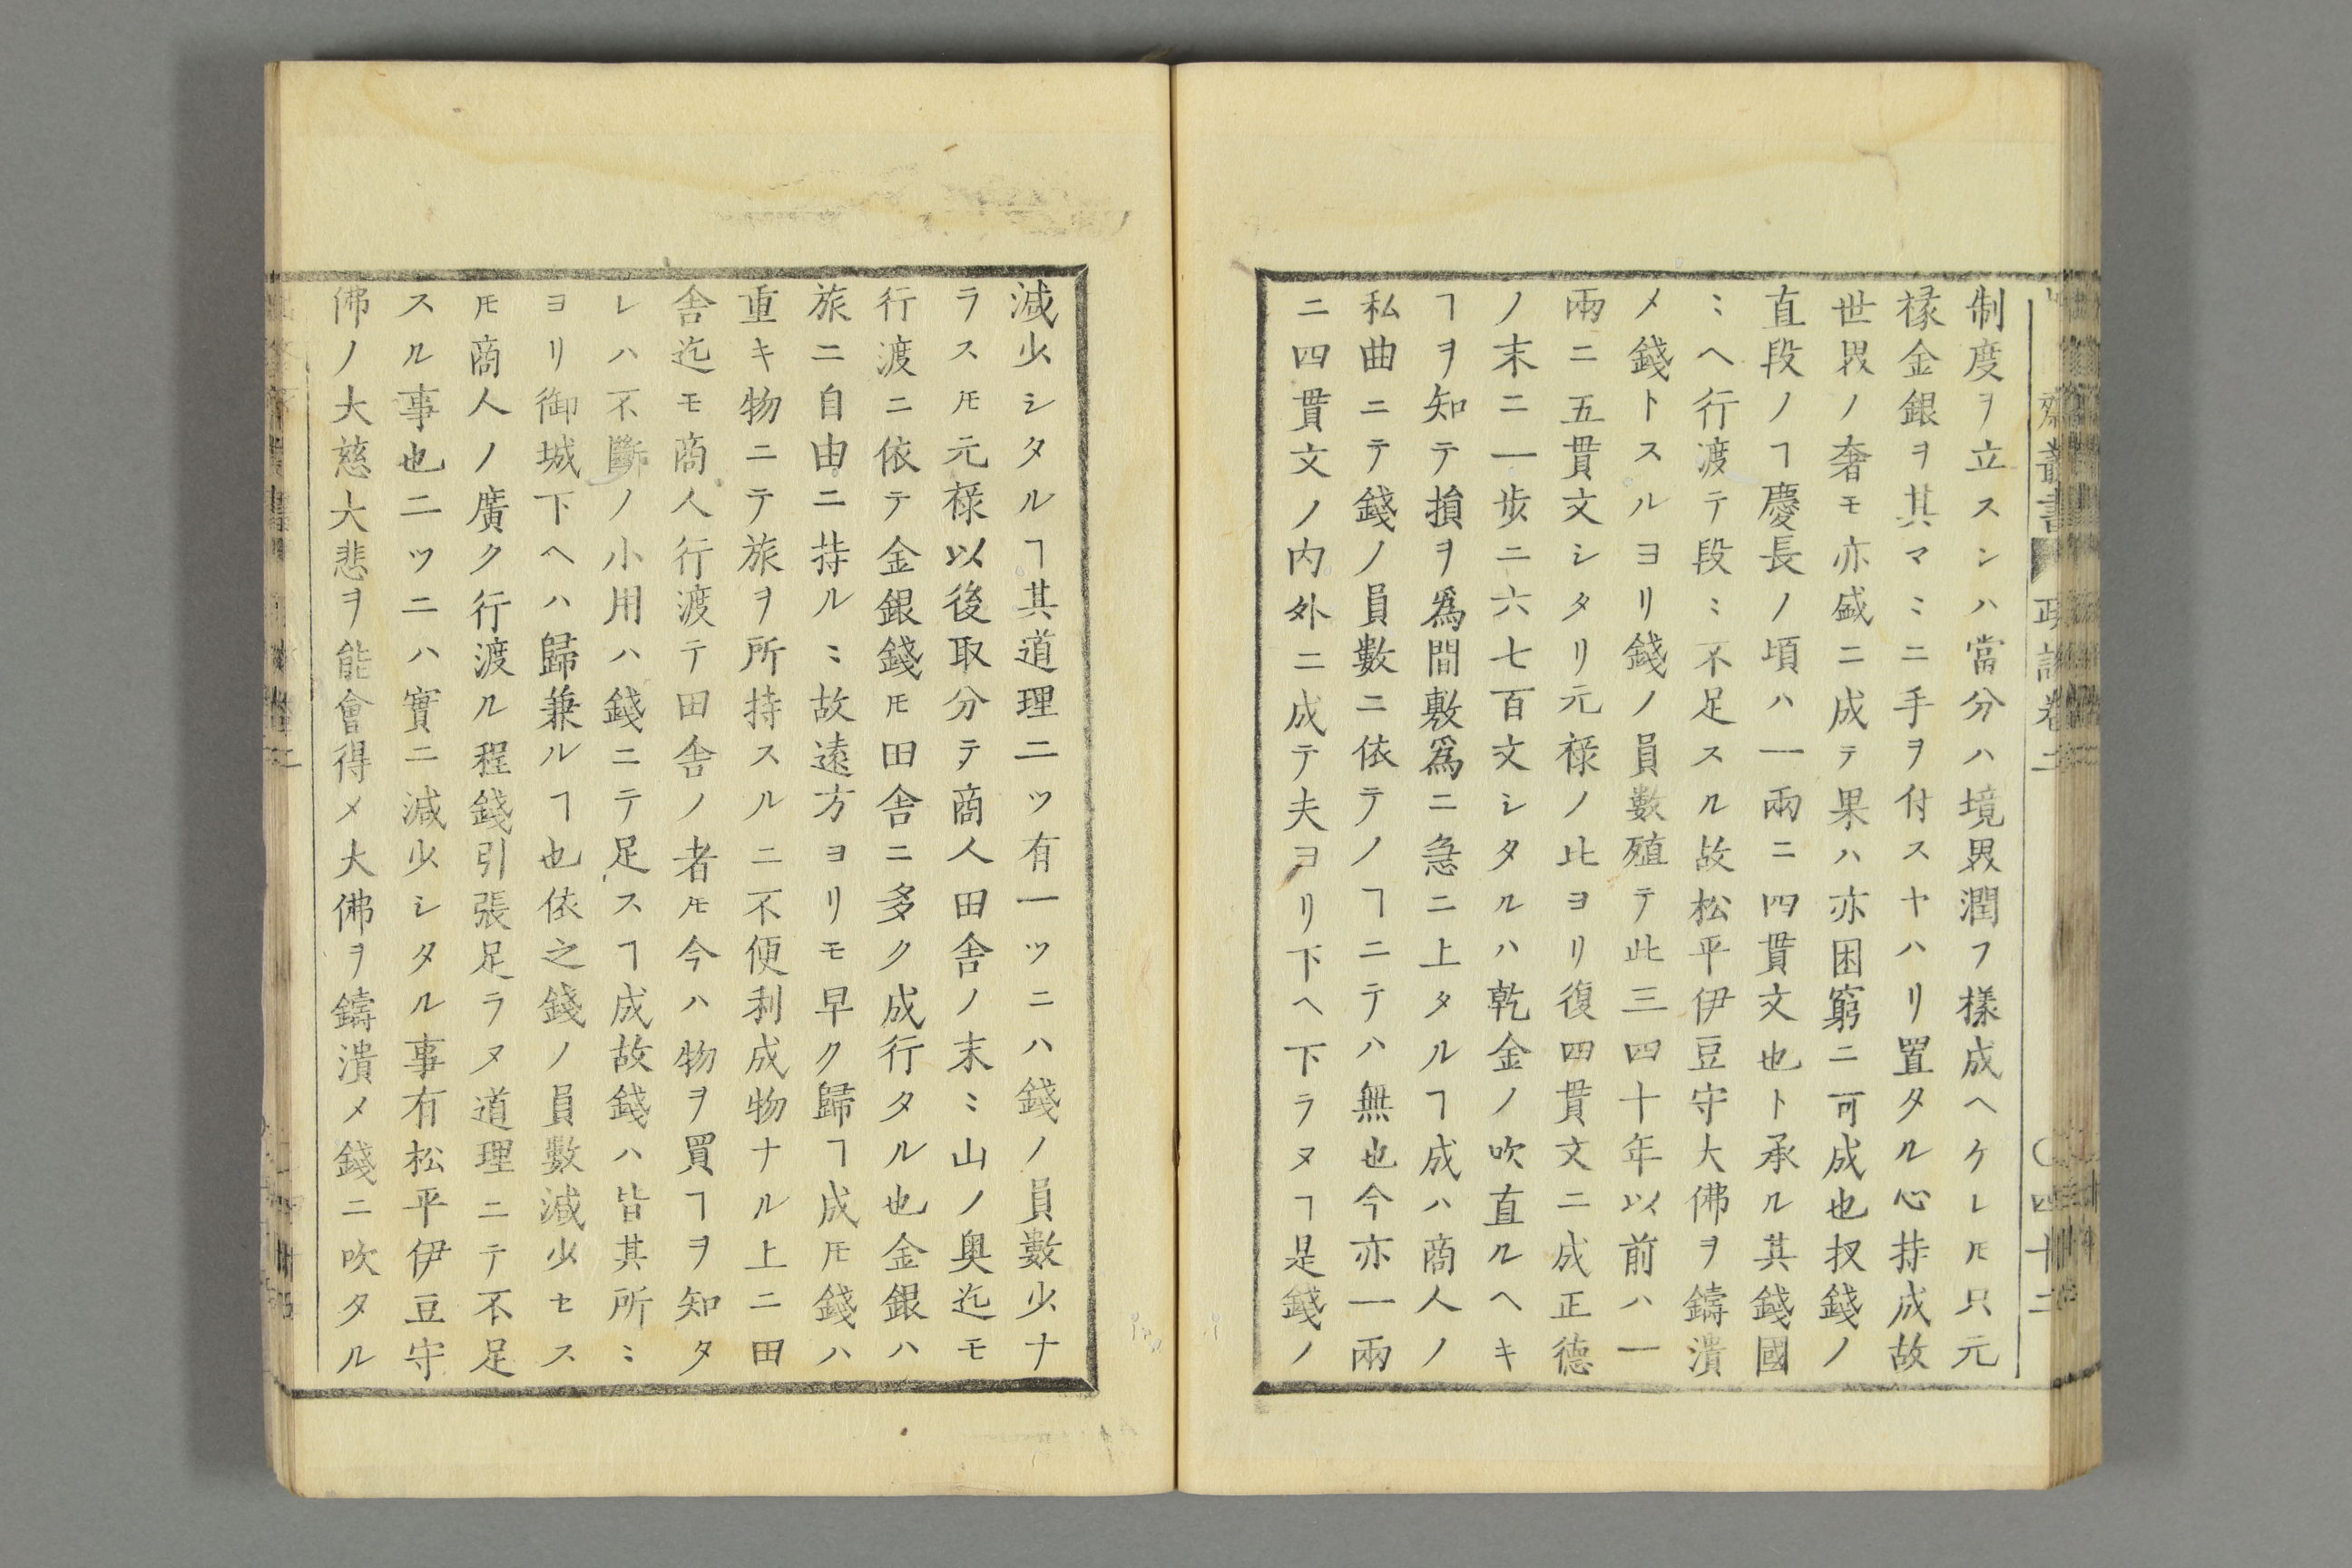 叢書 政談卷二 〇四十二
制度ヲ立スンハ當分ハ境界潤フ樣成ヘケレ𪜈只元
祿金銀ヲ其マヽニ手ヲ付スヤハリ置タル心持成故
世界ノ奢モ亦盛ニ成テ果ハ亦困窮ニ可成也扨錢ノ
直段ノヿ慶長ノ頃ハ一兩ニ四貫文也ト承ル其錢國
〻ヘ行渡テ段〻不足スル故松平伊豆守大佛ヲ鑄潰
メ錢トスルヨリ錢ノ員數殖テ此三四十年以前ハ一
兩ニ五貫文シタリ元祿ノ比ヨリ復四貫文ニ成正德
ノ末ニ一步ニ六七百文シタルハ乾金ノ吹直ルヘキ
ヿヲ知テ損ヲ爲間敷爲ニ急ニ上タルヿ成ハ商人ノ
私曲ニテ錢ノ員數ニ依テノヿニテハ無也今亦一兩
ニ四貫文ノ内外ニ成テ夫ヨリ下ヘ下ラヌヿ是錢ノ
減少シタルヿ其道理二ツ有一ツニハ錢ノ員數少ナ
ラス𪜈元祿以後取分テ商人田舍ノ末〻山ノ奧迄モ
行渡ニ依テ金銀錢𪜈田舍ニ多ク成行タル也金銀ハ
旅ニ自由ニ持ル〻故遠方ヨリモ早ク歸ヿ成𪜈錢ハ
重キ物ニテ旅ヲ所持スルニ不便利成物ナル上ニ田
舍迄モ商人行渡テ田舍ノ者𪜈今ハ物ヲ買ヿヲ知タ
レハ不斷ノ小用ハ錢ニテ足スヿ成故錢ハ皆其所〻
ヨリ御城下ヘハ歸兼ルヿ也依之錢ノ員數減少セス
𪜈商人ノ廣ク行渡ル程錢引張足ラヌ道理ニテ不足
スル事也二ツニハ實ニ減少シタル事有松平伊豆守
佛ノ大慈大悲ヲ能會得メ大佛ヲ鑄潰メ錢ニ吹タル